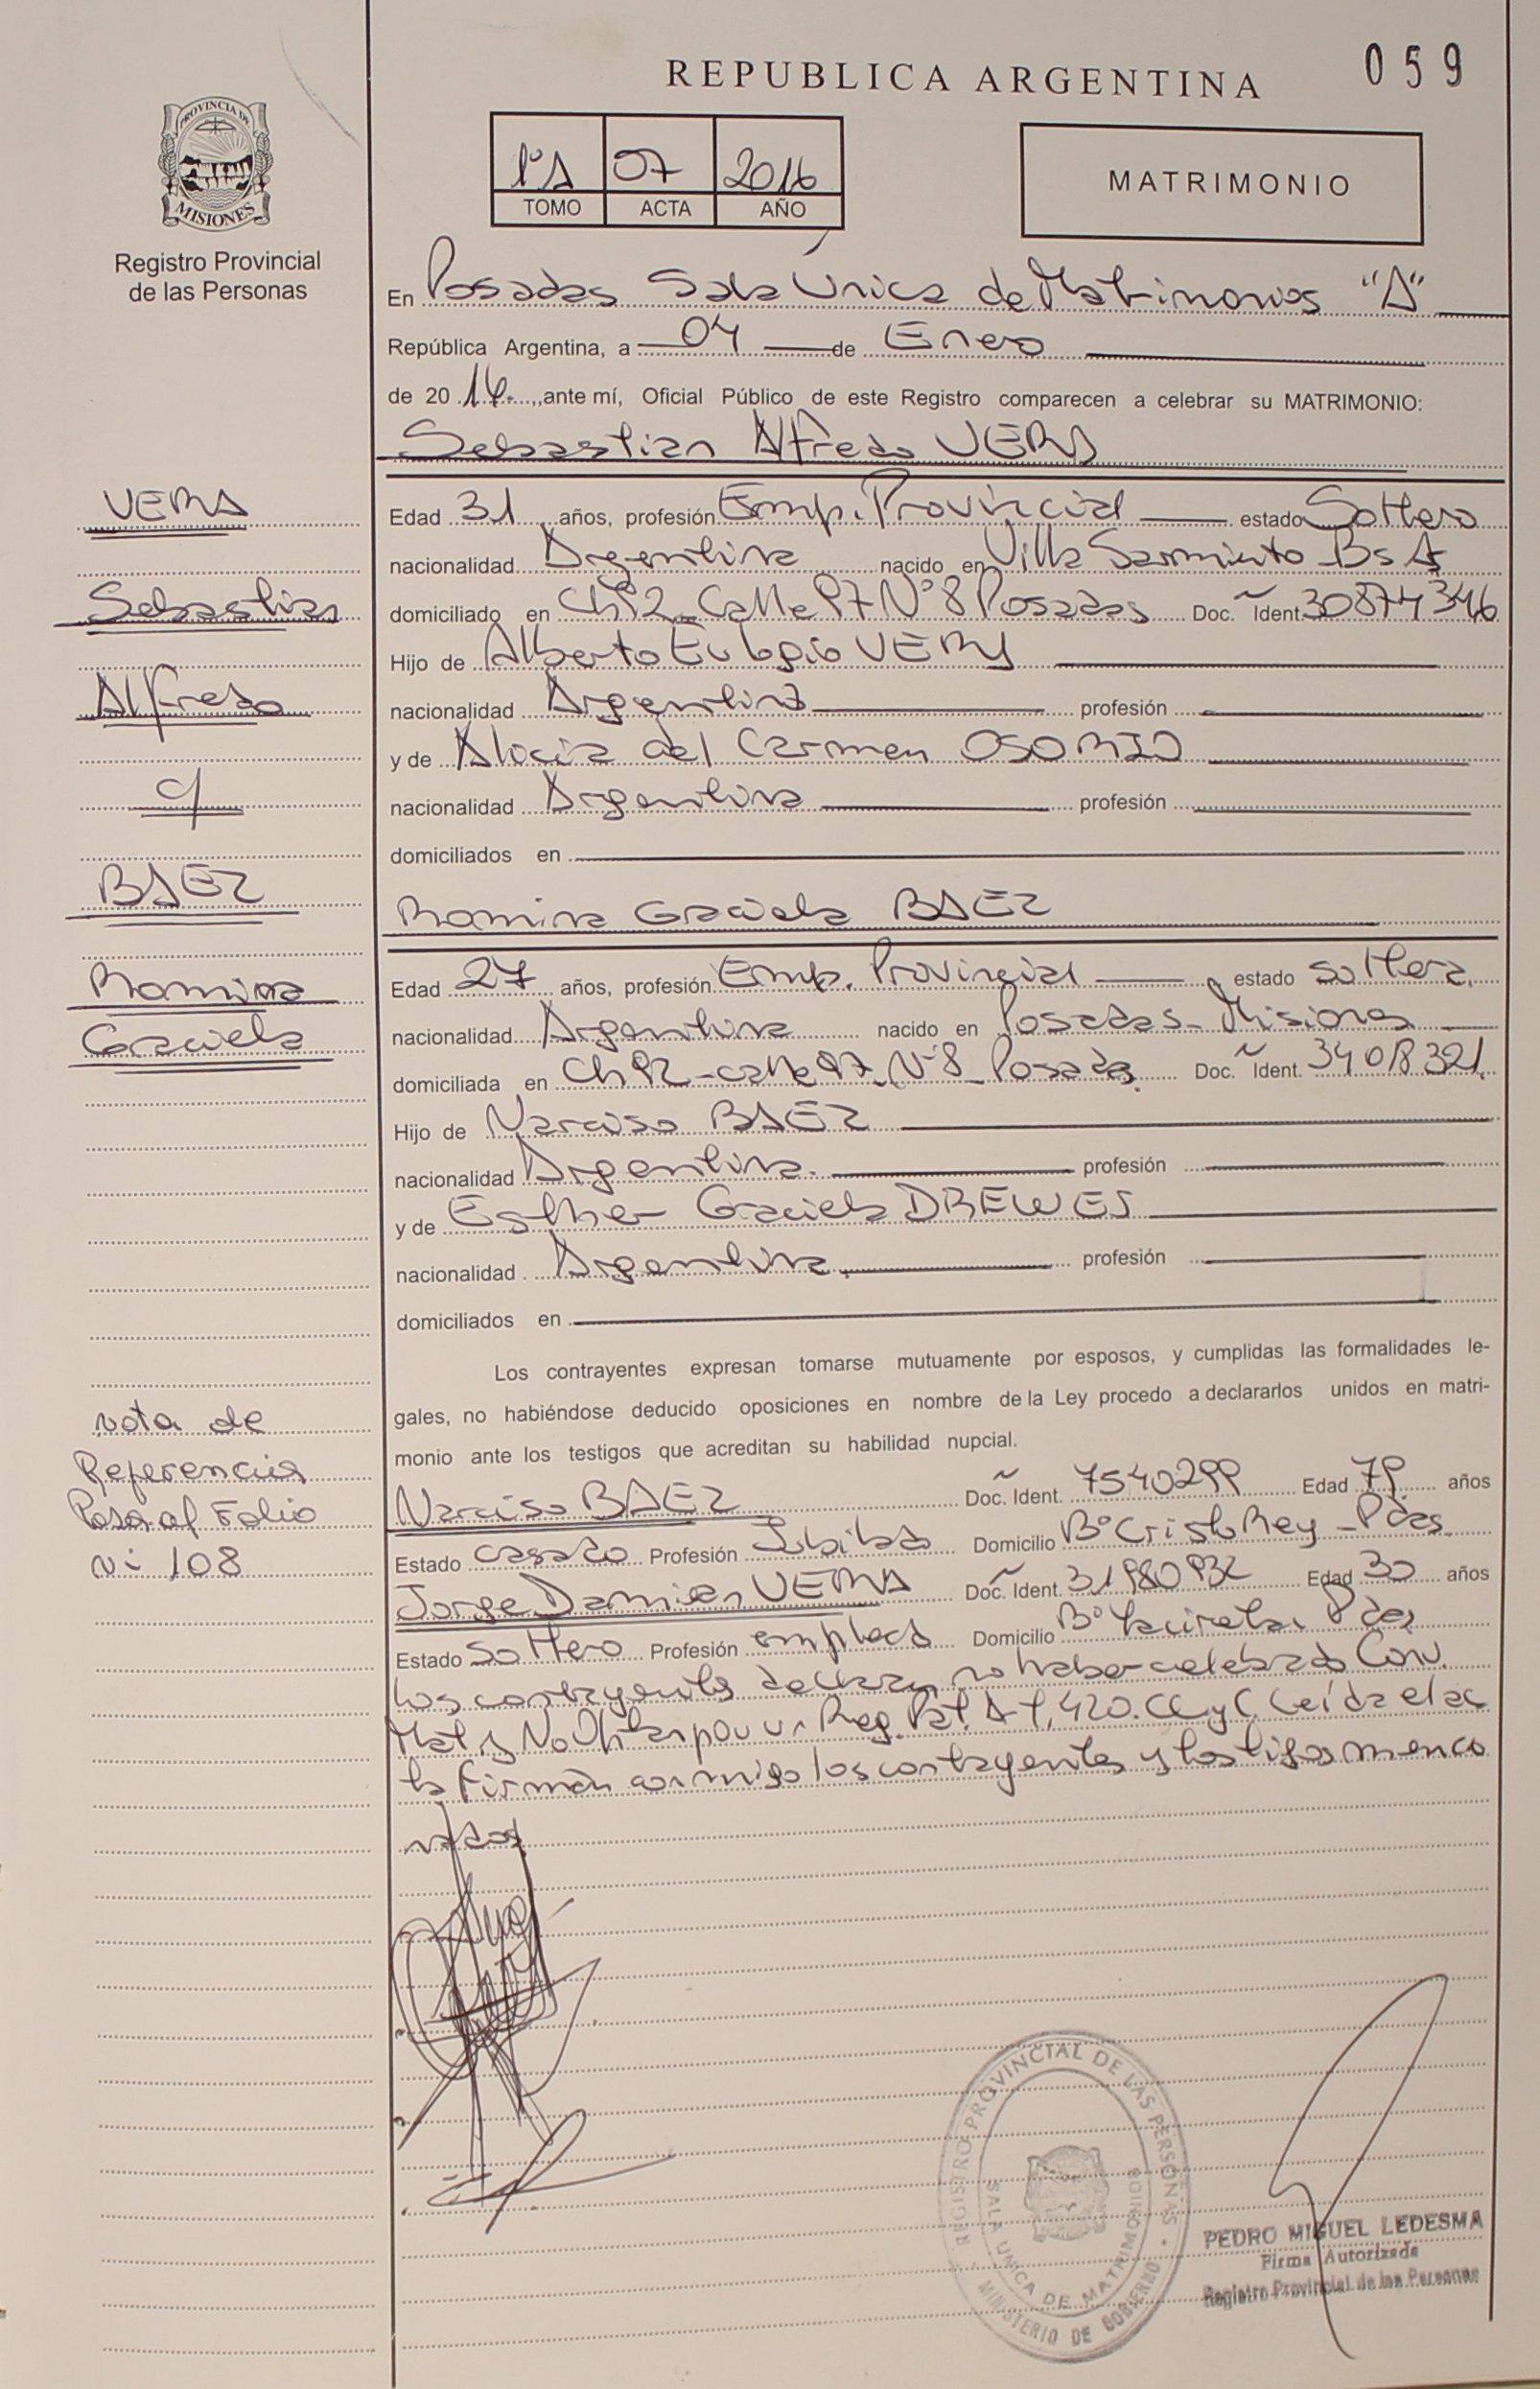 059
REPUBLICA ARGENTINA
PROVINCIA DE
MISIONES
Registro Provincial
de las Personas
1º A 07 2016
TOMO ACTA AÑO
MATRIMONIO
En Posadas Sala Única de Matrimonios "A"
República Argentina, a 04 de Enero
de 20 16, ante mí, Oficial Público de este Registro comparecen a celebrar su MATRIMONIO:
Sebastian Alfredo VERA
VERA
Sebastian
Alfredo
c/
BAEZ
Romina
Graciela
Edad 31 años, profesión Emp. Provincial estado Soltero
nacionalidad Argentina nacido en Villa Sarmiento Bs As
domiciliado en Ch 92 Calle 97 Nº 8 Posadas Doc. Ident. 30874346
Hijo de Alberto Eulogio VERA
nacionalidad Argentina profesión
y de Alocia del Carmen OSORIO
nacionalidad Argentina profesión
domiciliados en
Romina Graciela BAEZ
Edad 27 años, profesión Emp. Provincial estado soltera
nacionalidad Argentina nacido en Posadas - Misiones
domiciliada en Ch 92 - calle 97 Nº 8 Posadas Doc. Ident. 34018321
Hijo de Narciso BAEZ
nacionalidad Argentina profesión
y de Esther Graciela DREWES
nacionalidad Argentina profesión
domiciliados en
Los contrayentes expresan tomarse mutuamente por esposos, y cumplidas las formalidades le-
gales, no habiéndose deducido oposiciones en nombre de la Ley procedo a declararlos unidos en matri-
monio ante los testigos que acreditan su habilidad nupcial.
nota de
Referencia
Pasa al Folio
Nº 108
Narciso BAEZ Doc. Ident. 7540299 Edad 79 años
Estado casado Profesión Jubilado Domicilio Bº Cristo Rey - Pdas
Jorge Damian VERA Doc. Ident. 31980932 Edad 30 años
Estado soltero Profesión empleado Domicilio Bº Yacireta Pdas
Los contrayentes declaran no haber celebrado Conv.
Mat y No Optan por un Reg. Pat. Art. 420. CC y C. Leída el ac
ta firman conmigo los contrayentes y testigos mencio
nados
REGISTRO PROVINCIAL DE LAS PERSONAS
SALA UNICA DE MATRIMONIOS
MINISTERIO DE GOBIERNO
PEDRO MIGUEL LEDESMA
Firma Autorizada
Registro Provincial de las Personas